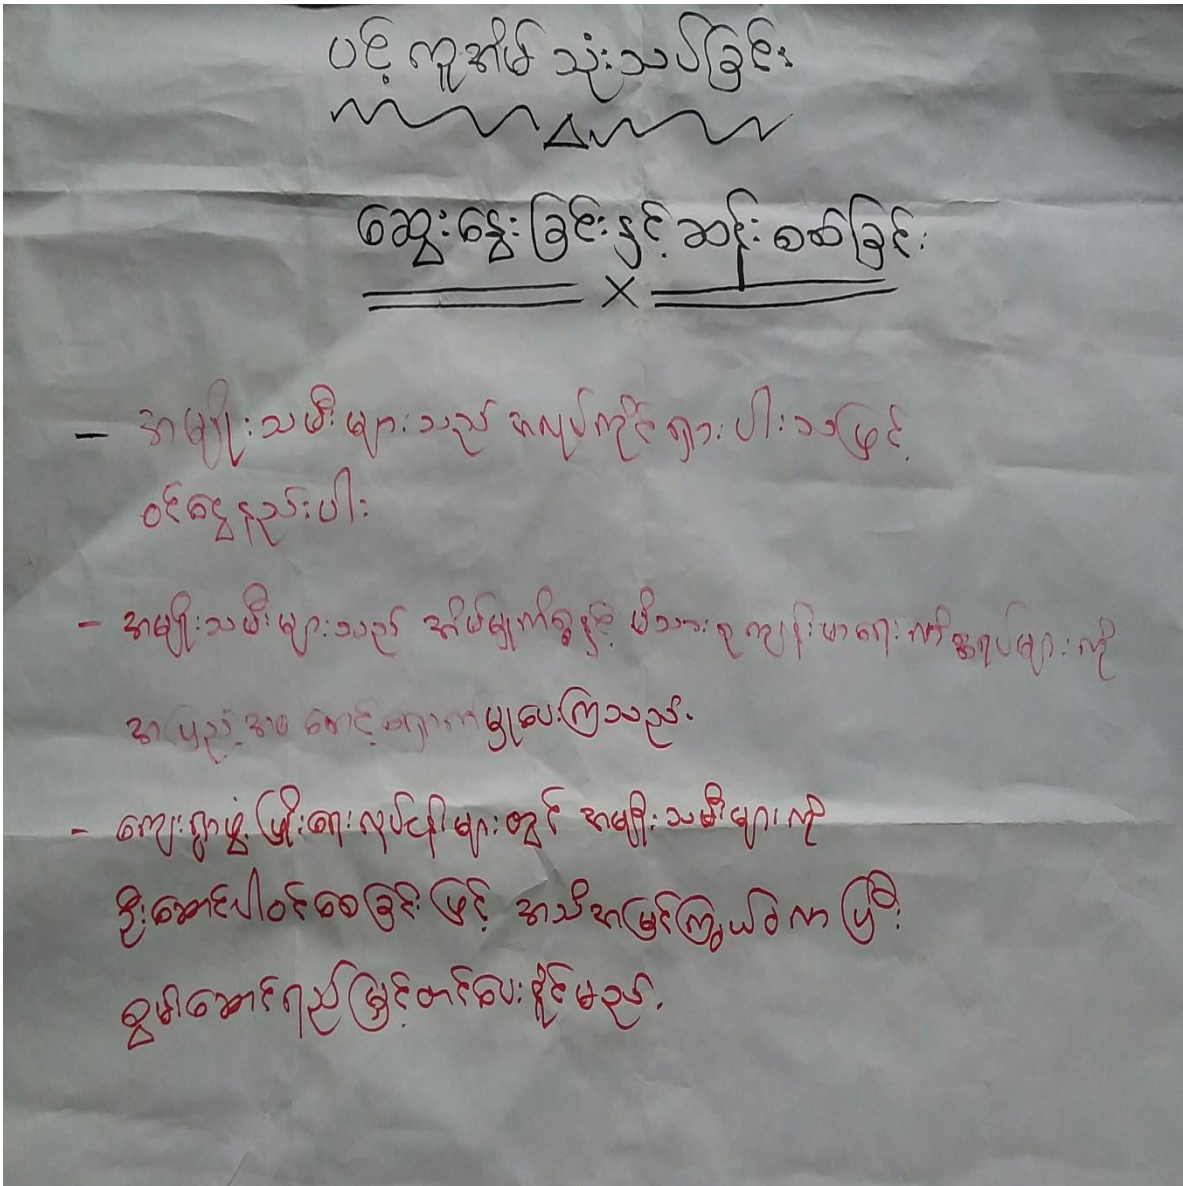 ပင့်ကူအိမ် သုံးသပ်ခြင်း
ဆွေးနွေးခြင်းနှင့် ဆန်းစစ်ခြင်း
- အမျိုးသမီးများသည် အလုပ်ကိုင်ရှားပါးသဖြင့်
ဝင်ငွေနည်းပါး
- အမျိုးသမီးများသည် အိမ်မှုကိစ္စနှင့် မိသားစုကျန်းမာရေး ကိစ္စရပ်များကို
အပြည့်အဝ စောင့်ရှောက်မှုပေးကြသည်။
- ကျေးရွာဖွံ့ဖြိုးရေးလုပ်ငန်းများတွင် အမျိုးသမီးများကို
ဦးဆောင်ပါဝင်စေခြင်းဖြင့် အသိအမြင်ကြွယ်ဝလာပြီး
စွမ်းဆောင်ရည်မြှင့်တင်ပေးနိုင်မည်။